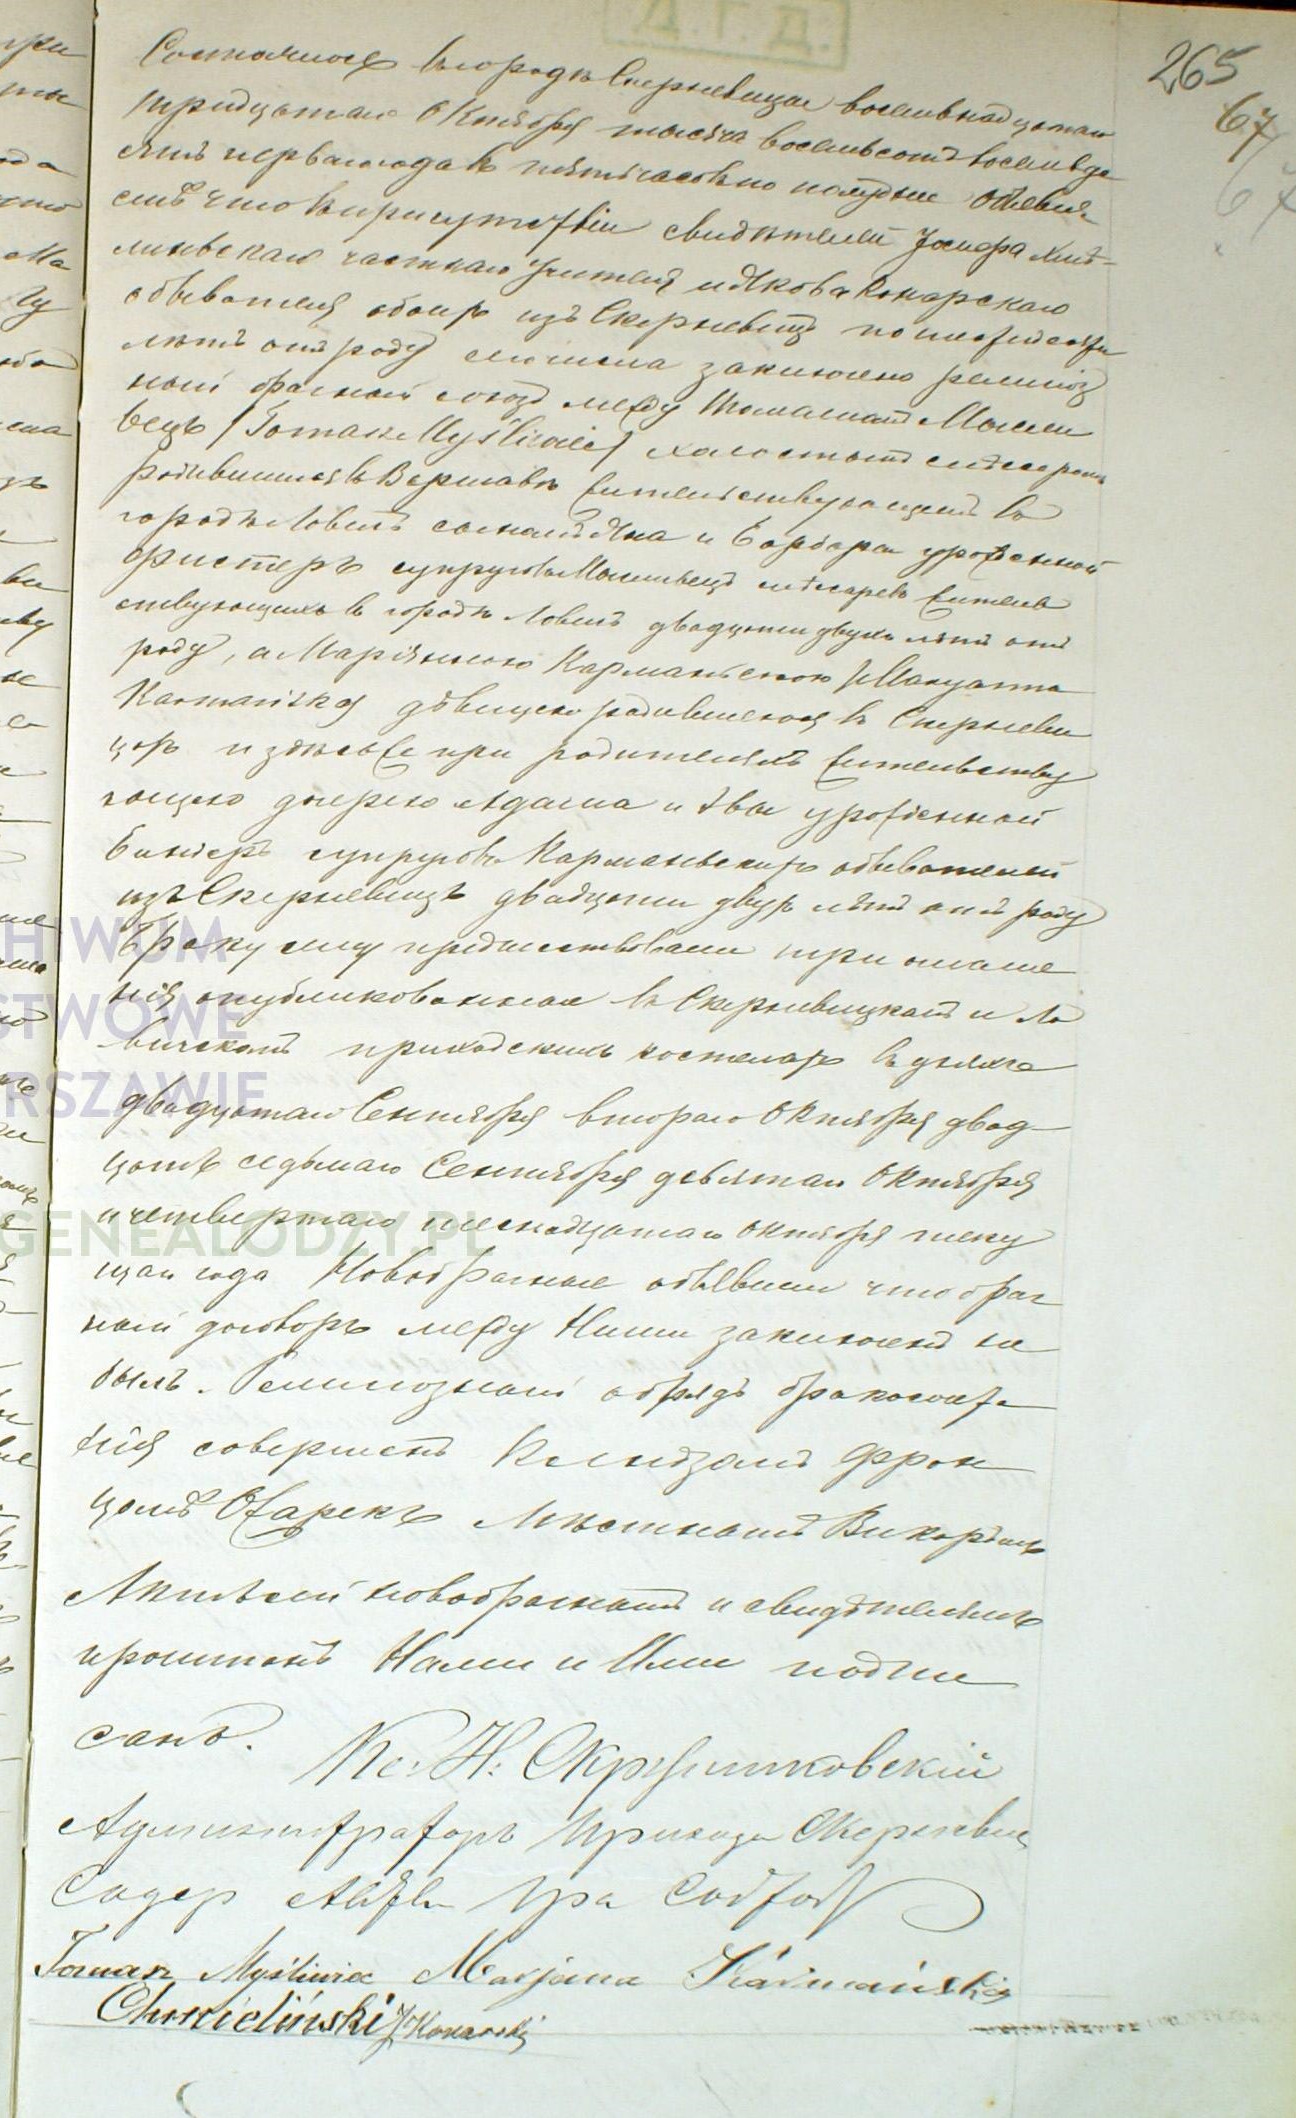 Д.Г.Д.
265
67
67
Состоялось въ городѣ Скерневицах восемнадцатаго
тридцатаго Октября тысяча восемьсотъ восемьде
сятъ перваго года въ пять часовъ по полудни Объявля
емъ что въ присутствіи свидѣтелей Іосифа Хмѣ-
линьскаго частнаго Учителя и Якова Конарскаго
обывателя обоихъ изъ Скерневицъ по шестидесяти
лѣтъ отъ роду сего числа заключенъ религіоз
ный брачный союзъ между Томашомъ Мысли
вецъ /Tomasz Myśliwiec/ холостымъ слѣсаремъ
родившимся въ Варшавѣ жительствующимъ въ
городѣ Ловичѣ сыномъ Яна и Барбары урожденной
Фистеръ супруговъ Мысливецъ слѣсарей житель
ствующихъ въ городѣ Ловичѣ двадцати двухъ лѣтъ отъ
роду, а Маріанною Карманьскою /Maryanna
Karmańska/ дѣвицею родившеюся въ Скерневи
цахъ и здѣсь же при родителяхъ жительству
ющею дочерью Адама и Евы урожденной
супруговъ Карманьскихъ обывателей
изъ Скерневицъ двадцати двухъ лѣтъ отъ роду
Браку сему предшествовали три оглаше
нія опубликованныя въ Скерневицкомъ и Ло
вичскомъ приходскихъ костелахъ въ дняхъ
двадцатаго Сентября втораго Октября двад-
цать седьмаго Сентября девятаго Октября
и четвертаго шеснадцатаго Октября теку
щаго года Новобрачные объявили что брач
ный договоръ между Ними заключенъ не
былъ. Религіозный обрядъ бракосоче
танія совершенъ Ксендзомъ Фран
цомъ Ожарекъ Мѣстнымъ Викаріемъ
Актъ сей новобрачнымъ и свидѣтелямъ
прочитанъ Нами и Ими подпи
санъ.
Кс: Н:
Администраторъ Прихода Скерневиц
Содер Акты Гра Сост
Tomasz Myśliwiec Marjana Karmańska
Chmieliński J Konarski
ARCHIWUM
PAŃSTWOWE
WARSZAWIE
GENEALODZY.PL